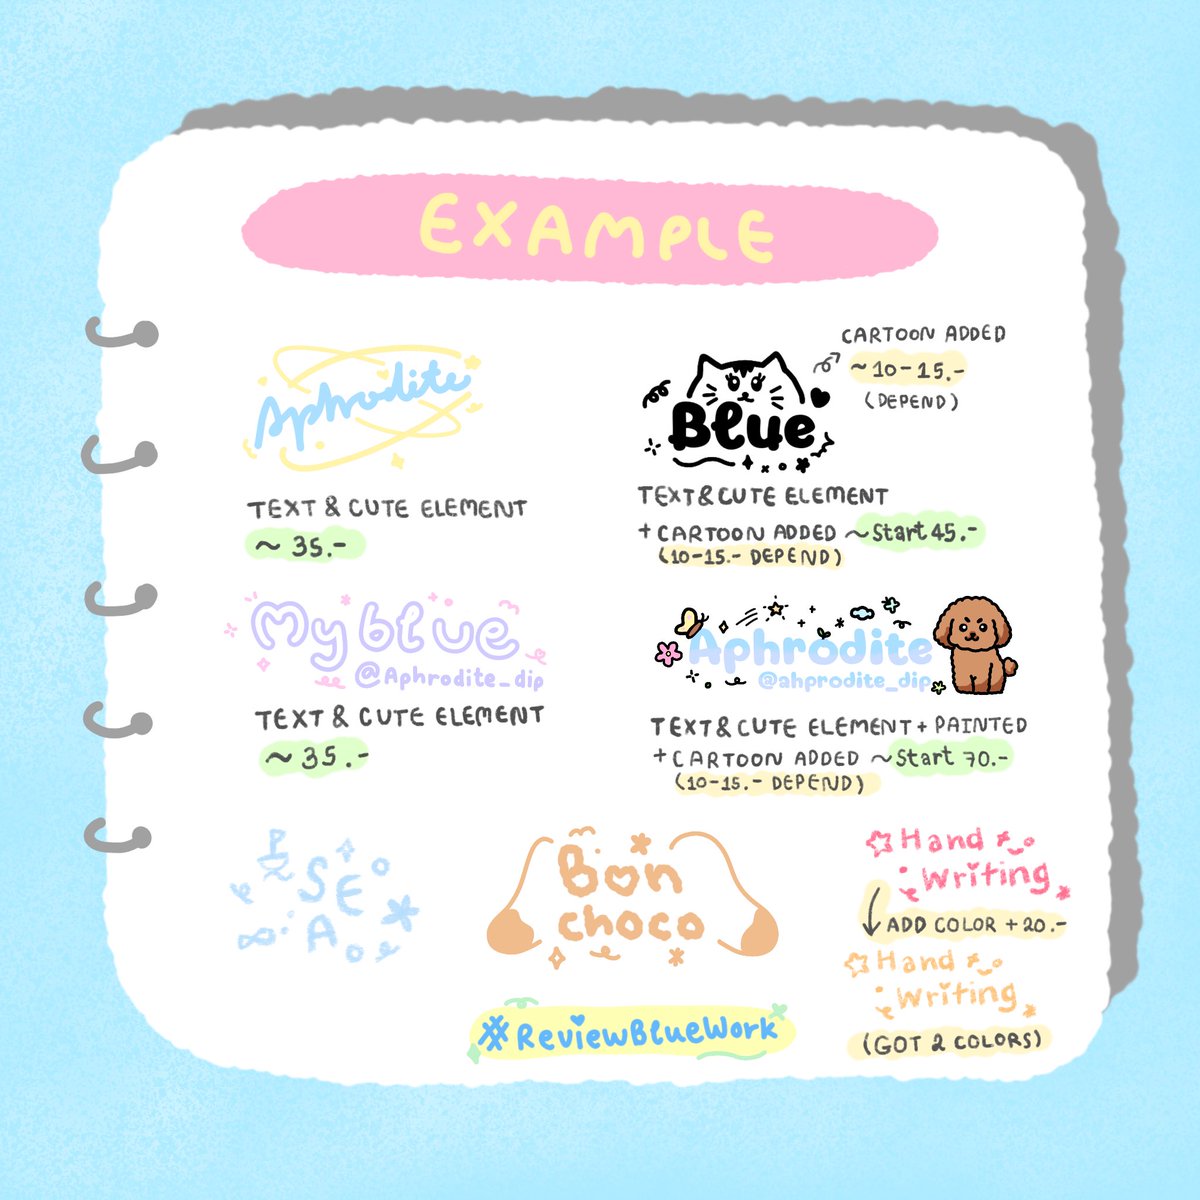 EXAMPLE
Aphrodite
TEXT & CUTE ELEMENT
~ 35.-
Blue
CARTOON ADDED
~ 10-15.-
(DEPEND)
TEXT & CUTE ELEMENT
+ CARTOON ADDED ~Start 45.-
(10-15.- DEPEND)
My blue
@Aphrodite_dip
TEXT & CUTE ELEMENT
~ 35.-
Aphrodite
@ahprodite_dip
TEXT & CUTE ELEMENT + PAINTED
+ CARTOON ADDED ~Start 70.-
(10-15.- DEPEND)
SEA
Bon
choco
Hand
Writing
ADD COLOR +20.-
Hand
Writing
(GOT 2 COLORS)
#ReviewBlueWork